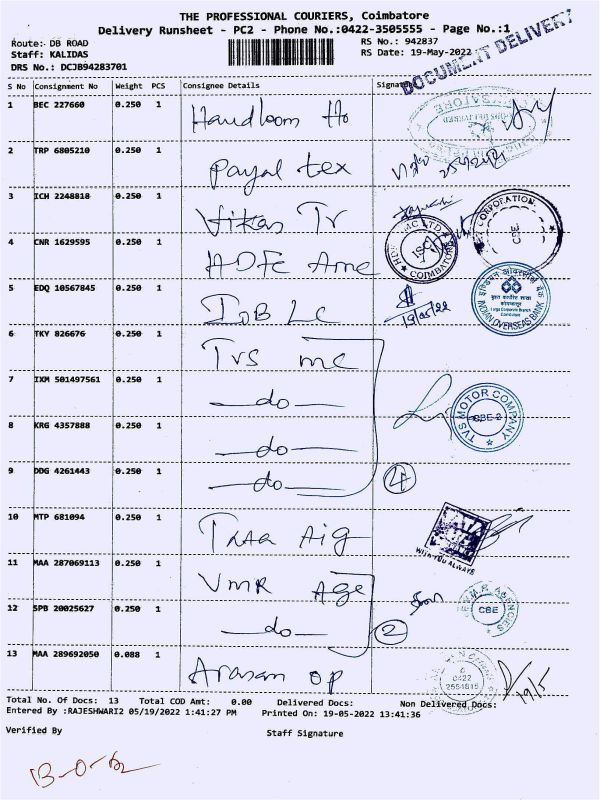 THE PROFESSIONAL COURIERS, Coimbatore
Delivery Runsheet - PC2 - Phone No.:0422-3505555 - Page No.:1
Route:- DB ROAD RS No.: 942837
Staff: KALIDAS RS Date: 19-May-2022
DRS No.: DCJB94283701
DOCUMENT DELIVERY
S No Consignment No Weight PCS Consignee Details Signature
1 BEC 227660 0.250 1 Handloom Ho
2 TRP 6805210 0.250 1 Payal tex
3 ICH 2248818 0.250 1 Vikas Tr
4 CNR 1629595 0.250 1 HDFC Ame
COIMBATORE
CORPORATION
CBE
5 EDQ 10567845 0.250 1 IOB LC
19/05/22
INDIAN OVERSEAS BANK
6 TKY 826676 0.250 1 TVS mc
7 IXM 501497561 0.250 1 do
TVS MOTOR COMPANY
CBE-2
8 KRG 4357888 0.250 1 do
9 DDG 4261443 0.250 1 do 4
10 MTP 681094 0.250 1 TATA Aig
WITH YOU ALWAYS
11 MAA 287069113 0.250 1 VMR Age
12 SPB 20025627 0.250 1 do 2
V.M.R. AGENCIES
CBE
13 MAA 289692050 0.088 1 Arasan op
0422
19/5
Total No. Of Docs: 13 Total COD Amt: 0.00 Delivered Docs: Non Delivered Docs:
Entered By :RAJESHWARI2 05/19/2022 1:41:27 PM Printed On: 19-05-2022 13:41:36
Verified By Staff Signature